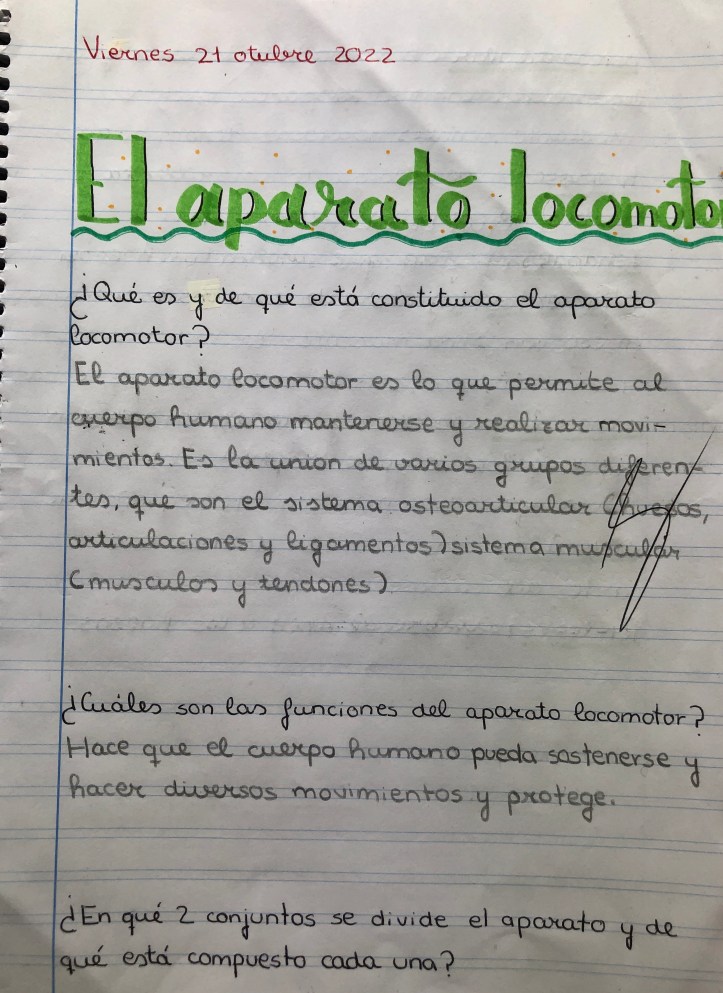 Viernes 21 otubre 2022
El aparato locomotor
¿Qué es y de qué está constituido el aparato
locomotor?
El aparato locomotor es lo que permite al
cuerpo humano mantenerse y realizar movi-
mientos. Es la union de varios grupos diferen-
tes, que son el sistema osteoarticular (huesos,
articulaciones y ligamentos) sistema muscular
(musculos y tendones)
¿Cuáles son las funciones del aparato locomotor?
Hace que el cuerpo humano pueda sostenerse y
hacer diversos movimientos y protege.
¿En qué 2 conjuntos se divide el aparato y de
qué está compuesto cada una?